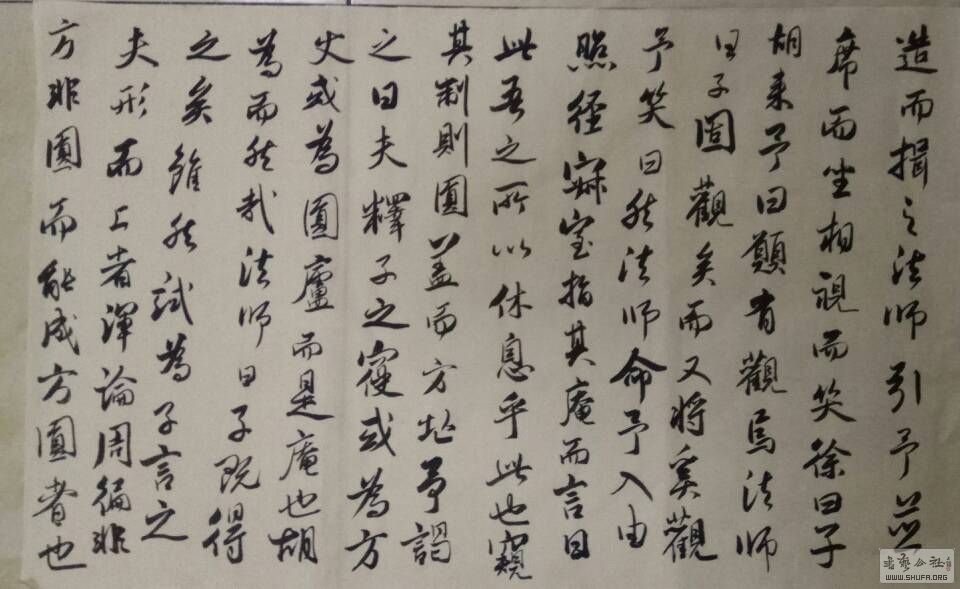 造而揖之法师引予並
席而坐相視而笑徐曰子
胡来予曰願有觀焉法师
曰子固觀矣而又将奚觀
予笑曰然法师命予入由
照径寂室指其庵而言曰
此吾之所以休息乎此也窺
其制則圓蓋而方址予謁
之曰夫釋子之寢或為方
丈或為圓廬而是庵也胡
為而然哉法师曰子既得
之矣雖然試為子言之
夫形而上者渾論周徧非
方非圓而能成方圓者也
书艺公社
WWW.SHUFA.ORG